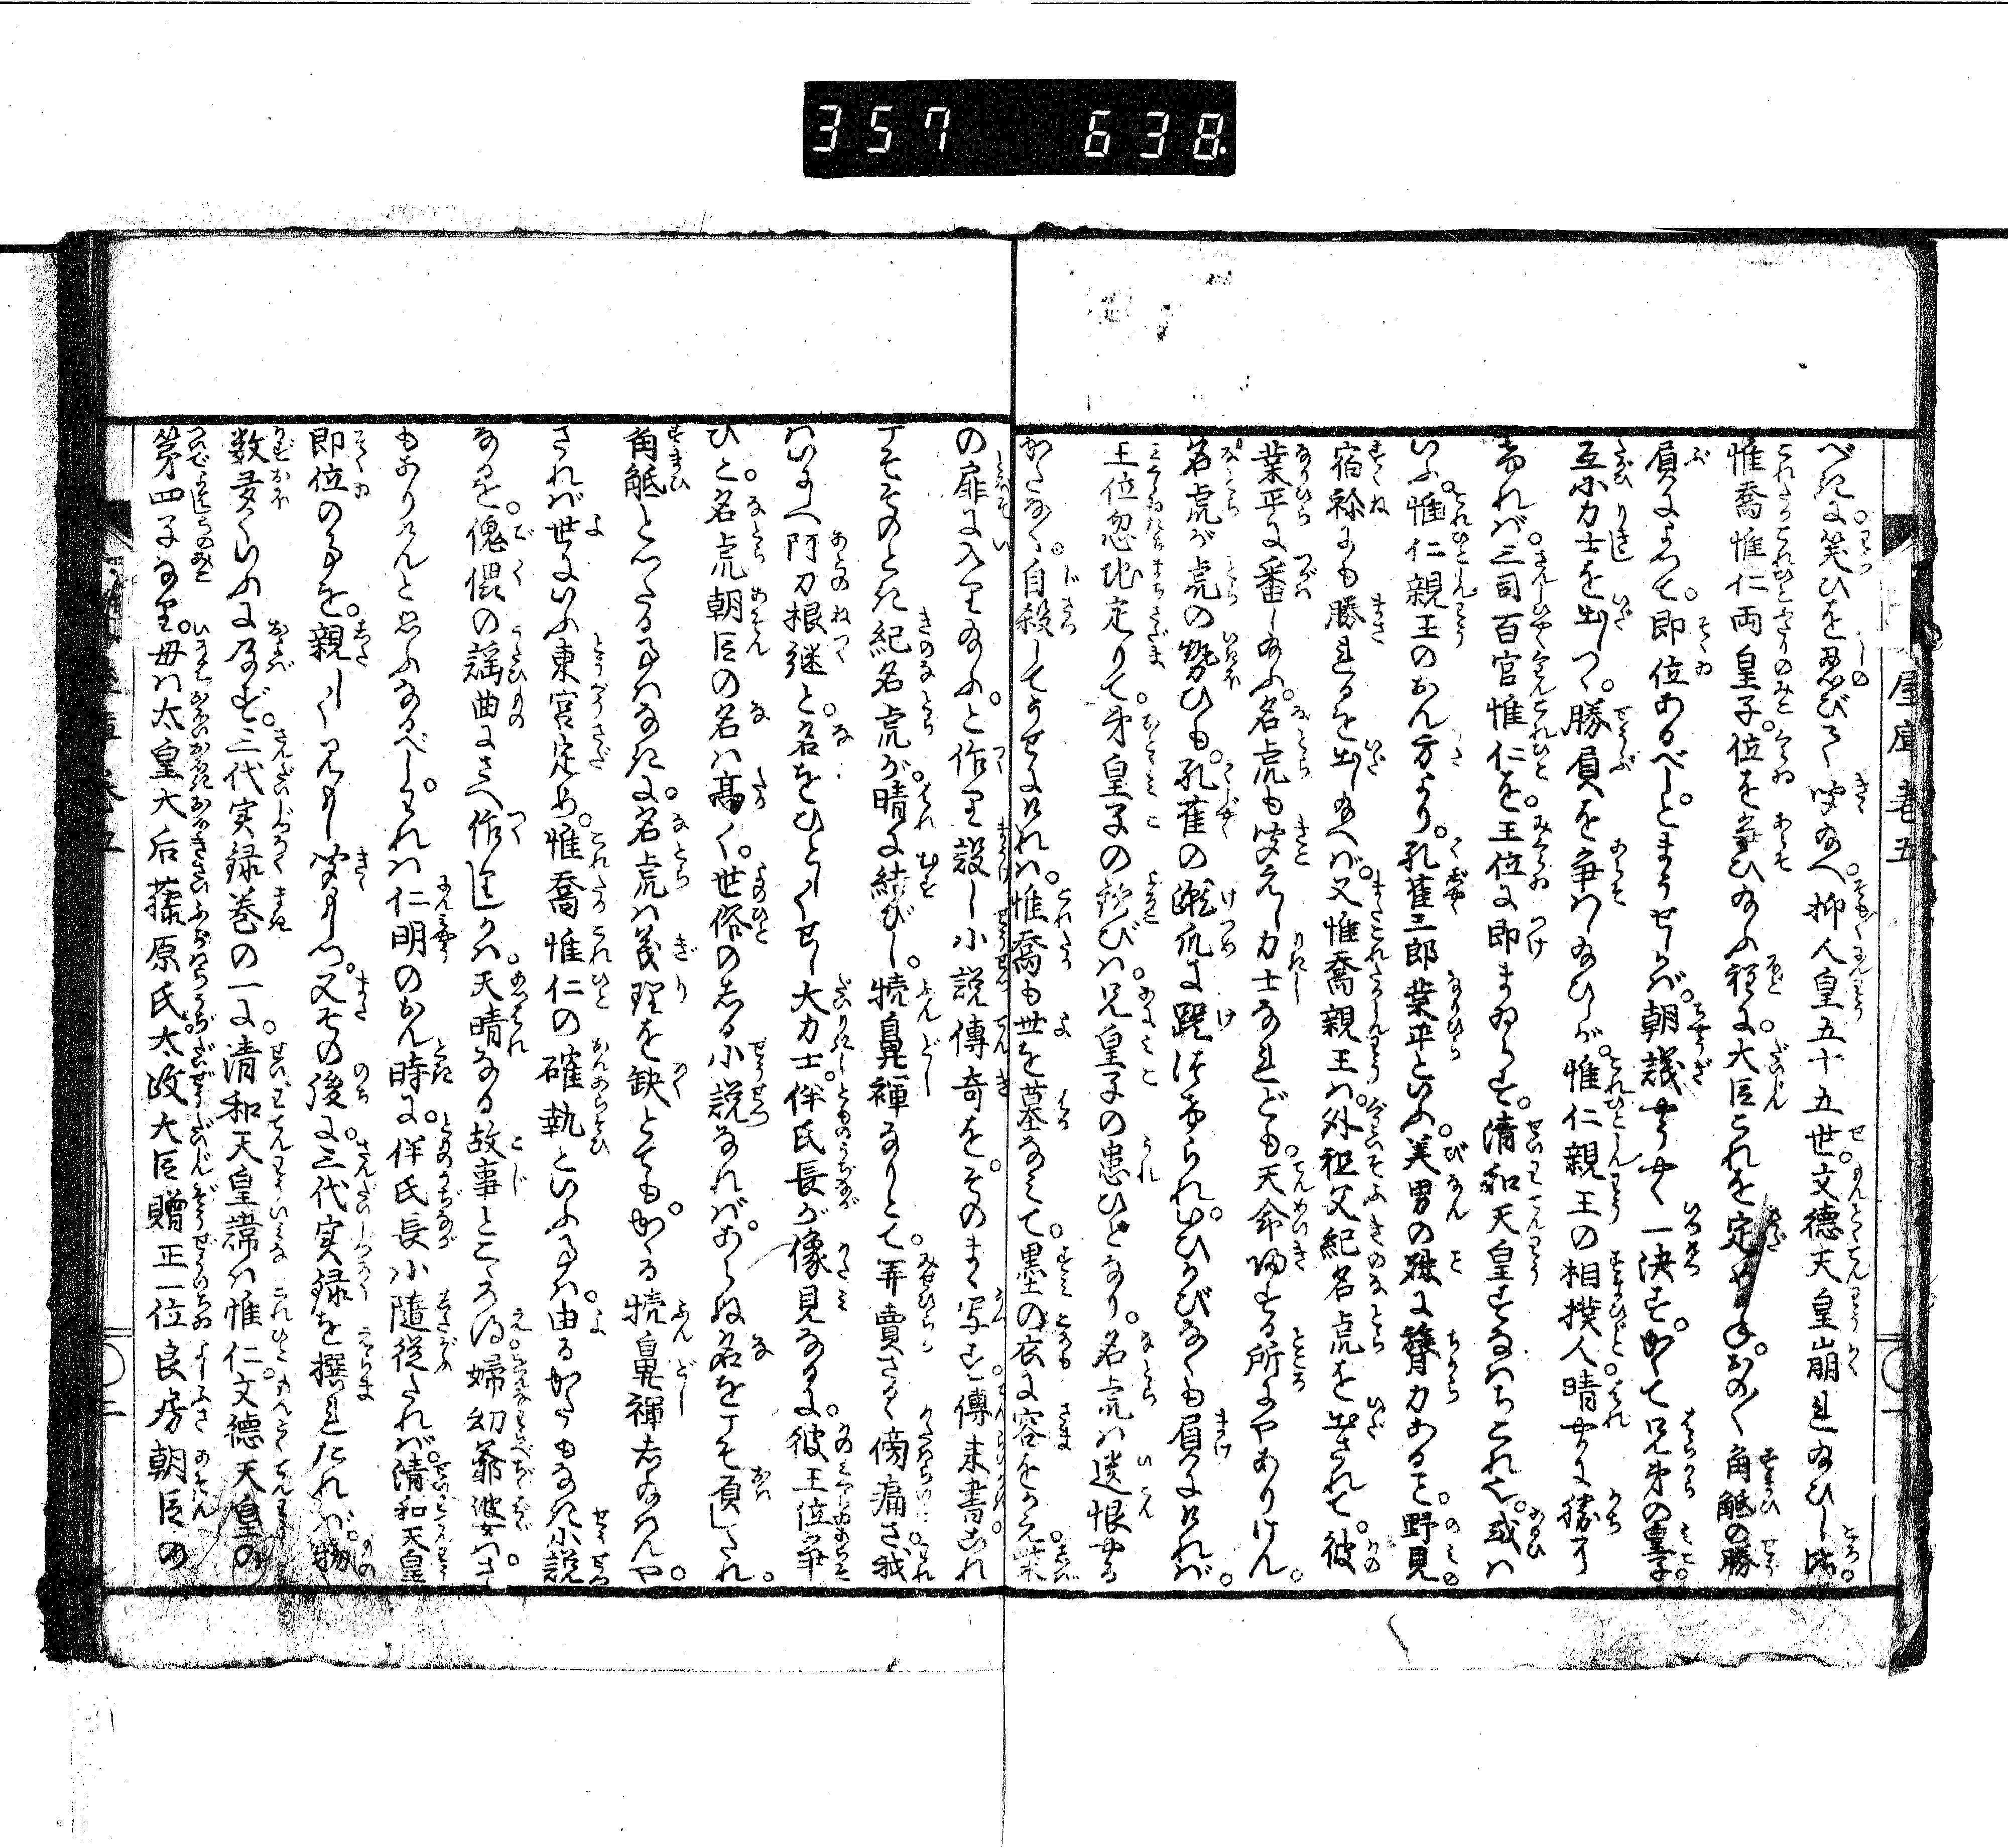 357 638
屋庫巻五
べきに。笑ひを忍びてく聞給へ。抑人皇五十五世。文徳天皇崩れ給ひし比。
惟喬惟仁両皇子。位を争ひ給ふ程に。大臣これを定めかね。おのく角觝の勝
負によつて。即位あるべしとまうせしかば。朝議やうやく一决す。かくて兄弟の皇子
互に力士を出しつ。勝負を争はし給ひしが。惟仁親王の相撲人晴やかに勝了
しかれば。三司百官惟仁を。王位に即まゐらす。清和天皇すなはちこれ也。或は
いふ。惟仁親王のおん方より。孔雀三郎業平といふ。美男の殊に膂力あるを。野見
宿祢にも勝れるを出し給へば。又惟喬親王は。外祖父紀名虎を出されて。彼
業平に番し給ふ。名虎も聞えし力士なれども。天命帰する所にやありけん。
名虎が虎の勢ひも。孔雀の蹴爪に蹴けられ。ひかびなくも負にければ。
王位忽地定りて。弟皇子の歓びは。兄皇子の患ひとなり。名虎は遺恨やる
かたなく。自殺してうせにければ。惟喬も世を墓なみて。墨の衣に容をかえ。柴
の扉に入り給ふ。と作り設し小説傳奇を。そのまゝ写す。傳来書あれ
こそそのとき紀名虎が。晴に結びし。犢鼻褌なりとて弄賣さへ傍痛き。我
はいにへ阿刀根継と。名をひとしくせし大力士。伴氏長が像見なるに。彼王位争
ひと。名虎朝臣の名は高く。世俗のしる小説なれば。あらぬ名をこそ負したれ。
角觝とつたる事はなきに。名虎は義理を缺とても。かゝる犢鼻褌しよめんや。
されば世にいふ東宮定め。惟喬惟仁の確執といふ事は。由るかたもなき小説
なるを。傀儡の謡曲にさへ作りしかは。天晴なる故事とこゝろ得。婦幼爺婆はさ
もありけんと思ふなるべし。われは仁明のおん時に。伴氏長に隨従たれば。清和天皇
即位の事を。親しく見もし聞もしつ。又その後に。三代実録を撰れたれば。物
数多くいふに及ばず。三代実録巻の一に。清和天皇諱は惟仁。文徳天皇の
第四子なり。母は太皇大后藤原氏。太政大臣贈正一位良房朝臣の